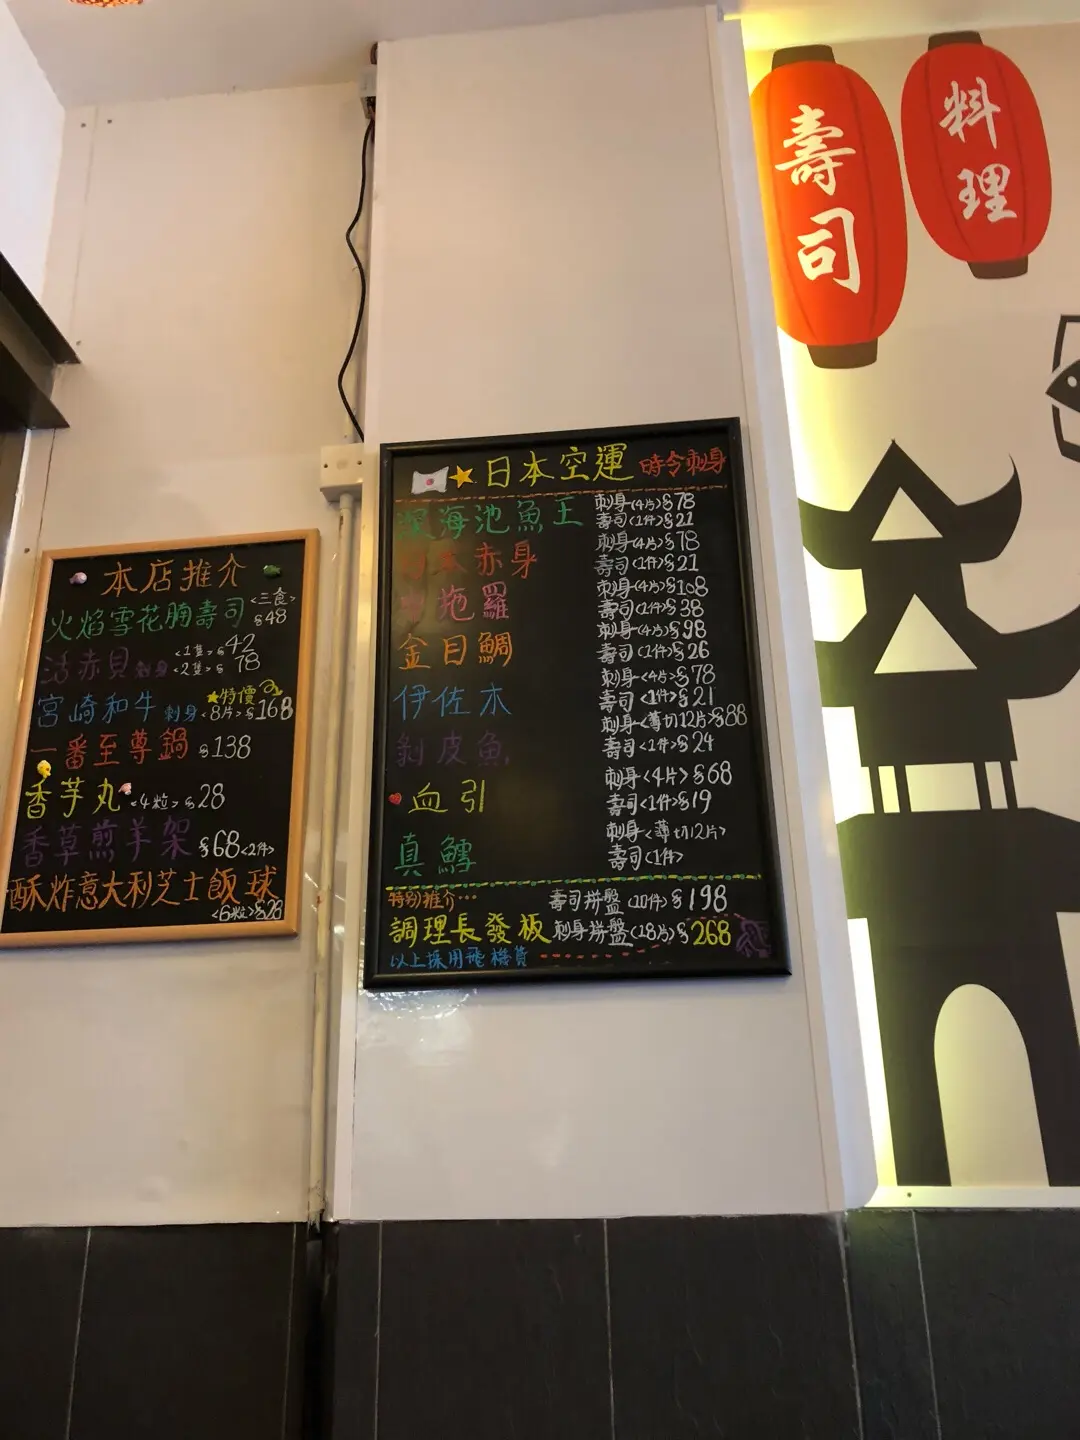 本店推介
火焰雪花腩壽司 <三食> $48
活赤貝刺身 <1隻> $42
<2隻> $78
★特價
宮崎和牛刺身<8片> $168
一番至尊鍋 $138
香芋丸 <4粒> $28
香草煎羊架 $68<2件>
酥炸意大利芝士飯球
<6粒> $28
日本空運 時令刺身
深海池魚王 刺身(4片)$78
壽司<1件>$21
日本赤身 刺身(4片)$78
壽司<1件>$21
拖羅 刺身(4片)$108
壽司<1件>$38
金目鯛 刺身(4片)$98
壽司<1件>$26
伊佐木 刺身<4片>$78
壽司<1件>$21
剝皮魚 刺身<薄切12片>$88
壽司<1件>$24
血引 刺身<4片>$68
壽司<1件>$19
真鱈 刺身<薄切12片>
壽司<1件>
特別推介… 壽司拼盤(10件)$198
調理長發板 刺身拼盤(18片)$268
以上採用飛機貨
壽司
料理